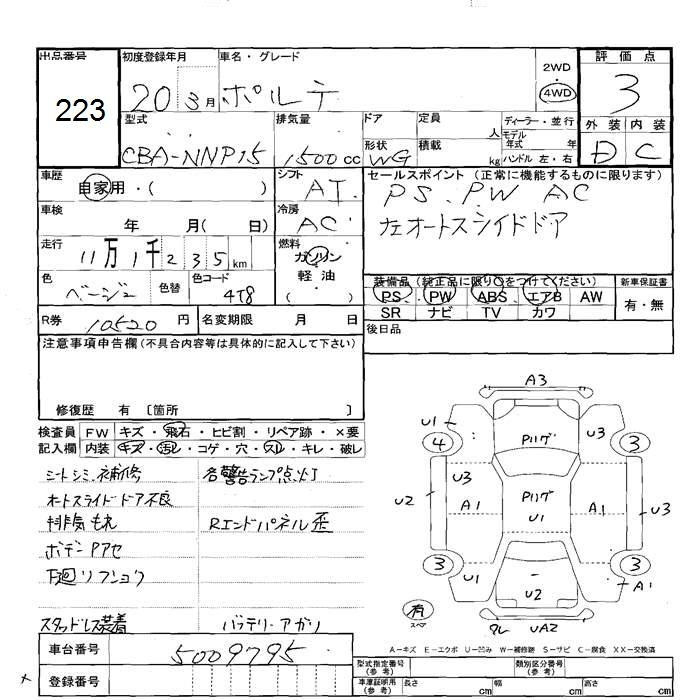 出品番号 初度登録年月 車名・グレード 評価点
223
20 3月 ポルテ
2WD
・
4WD
3
型式 排気量 ドア 定員 人 ディーラー・並行
外装 内装
CBA-NNP15 1500cc
形状 WG 積載 kg
モデル年式 年
ハンドル 左・右
D C
車歴 自家用・( )
シフト AT
セールスポイント (正常に機能するものに限ります)
PS.PW AC
左オートスライドドア
車検 年 月( 日)
冷房 AC
走行 11万1千235km
燃料 ガソリン
軽油
( )
色 ベージュ 色替 色コード 4T8
装備品 (純正品に限り○をつけてください) 新車保証書
PS PW ABS エアB AW
有・無
SR ナビ TV カワ
R券 10520円 名変期限 月 日
後日品
注意事項申告欄(不具合内容等は具体的に記入して下さい)
修復歴 有 〔箇所 〕
検査員 FW キズ・飛石・ヒビ割・リペア跡・×要
記入欄 内装 キズ・汚レ・コゲ・穴・スレ・キレ・破レ
シートシミ.補修 各警告ランプ点灯
オートスライドドア不良
排気もれ Rエンドパネル歪
ボデーヤアセ
下廻リフショク
スタッドレス装着 バッテリーアガリ
A3
U1 Pリング U3
4 3
U3
U2 A1 Pリング A1 U3
U1
3 3
U1 U2 A1
有
スペア
タレ UA2
A-キズ E-エクボ U-凹み W-補修跡 S-サビ C-腐食 XX-交換済
車台番号 5009795
型式指定番号(参考) 類別区分番号(参考)
登録番号
車庫証明用(参考) 長さ cm 幅 cm 高さ cm